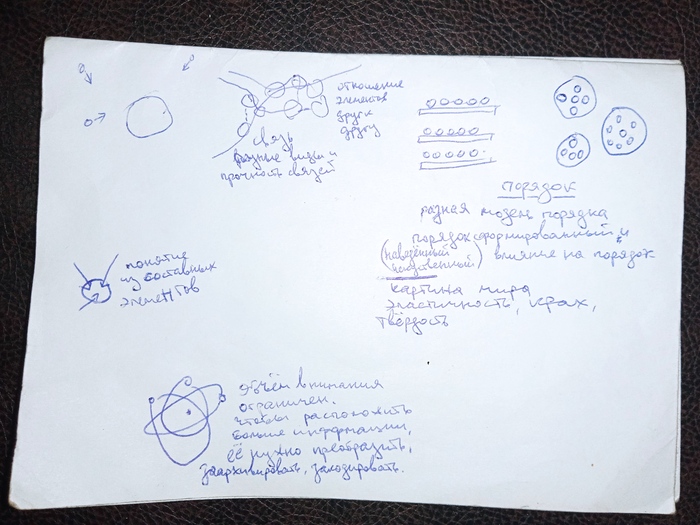 отношение
элементов
друг к
другу
связь
разные виды и
прочность связей
порядок
разная модель порядка
порядок сформированный и
(наведённый
искусственный) влияние на порядок
картина мира
эластичность, крах,
твёрдость
понятие
из составных
элементов
объём внимания
ограничен.
чтобы расположить
больше информации,
её нужно преобразить,
заархивировать, закодировать.